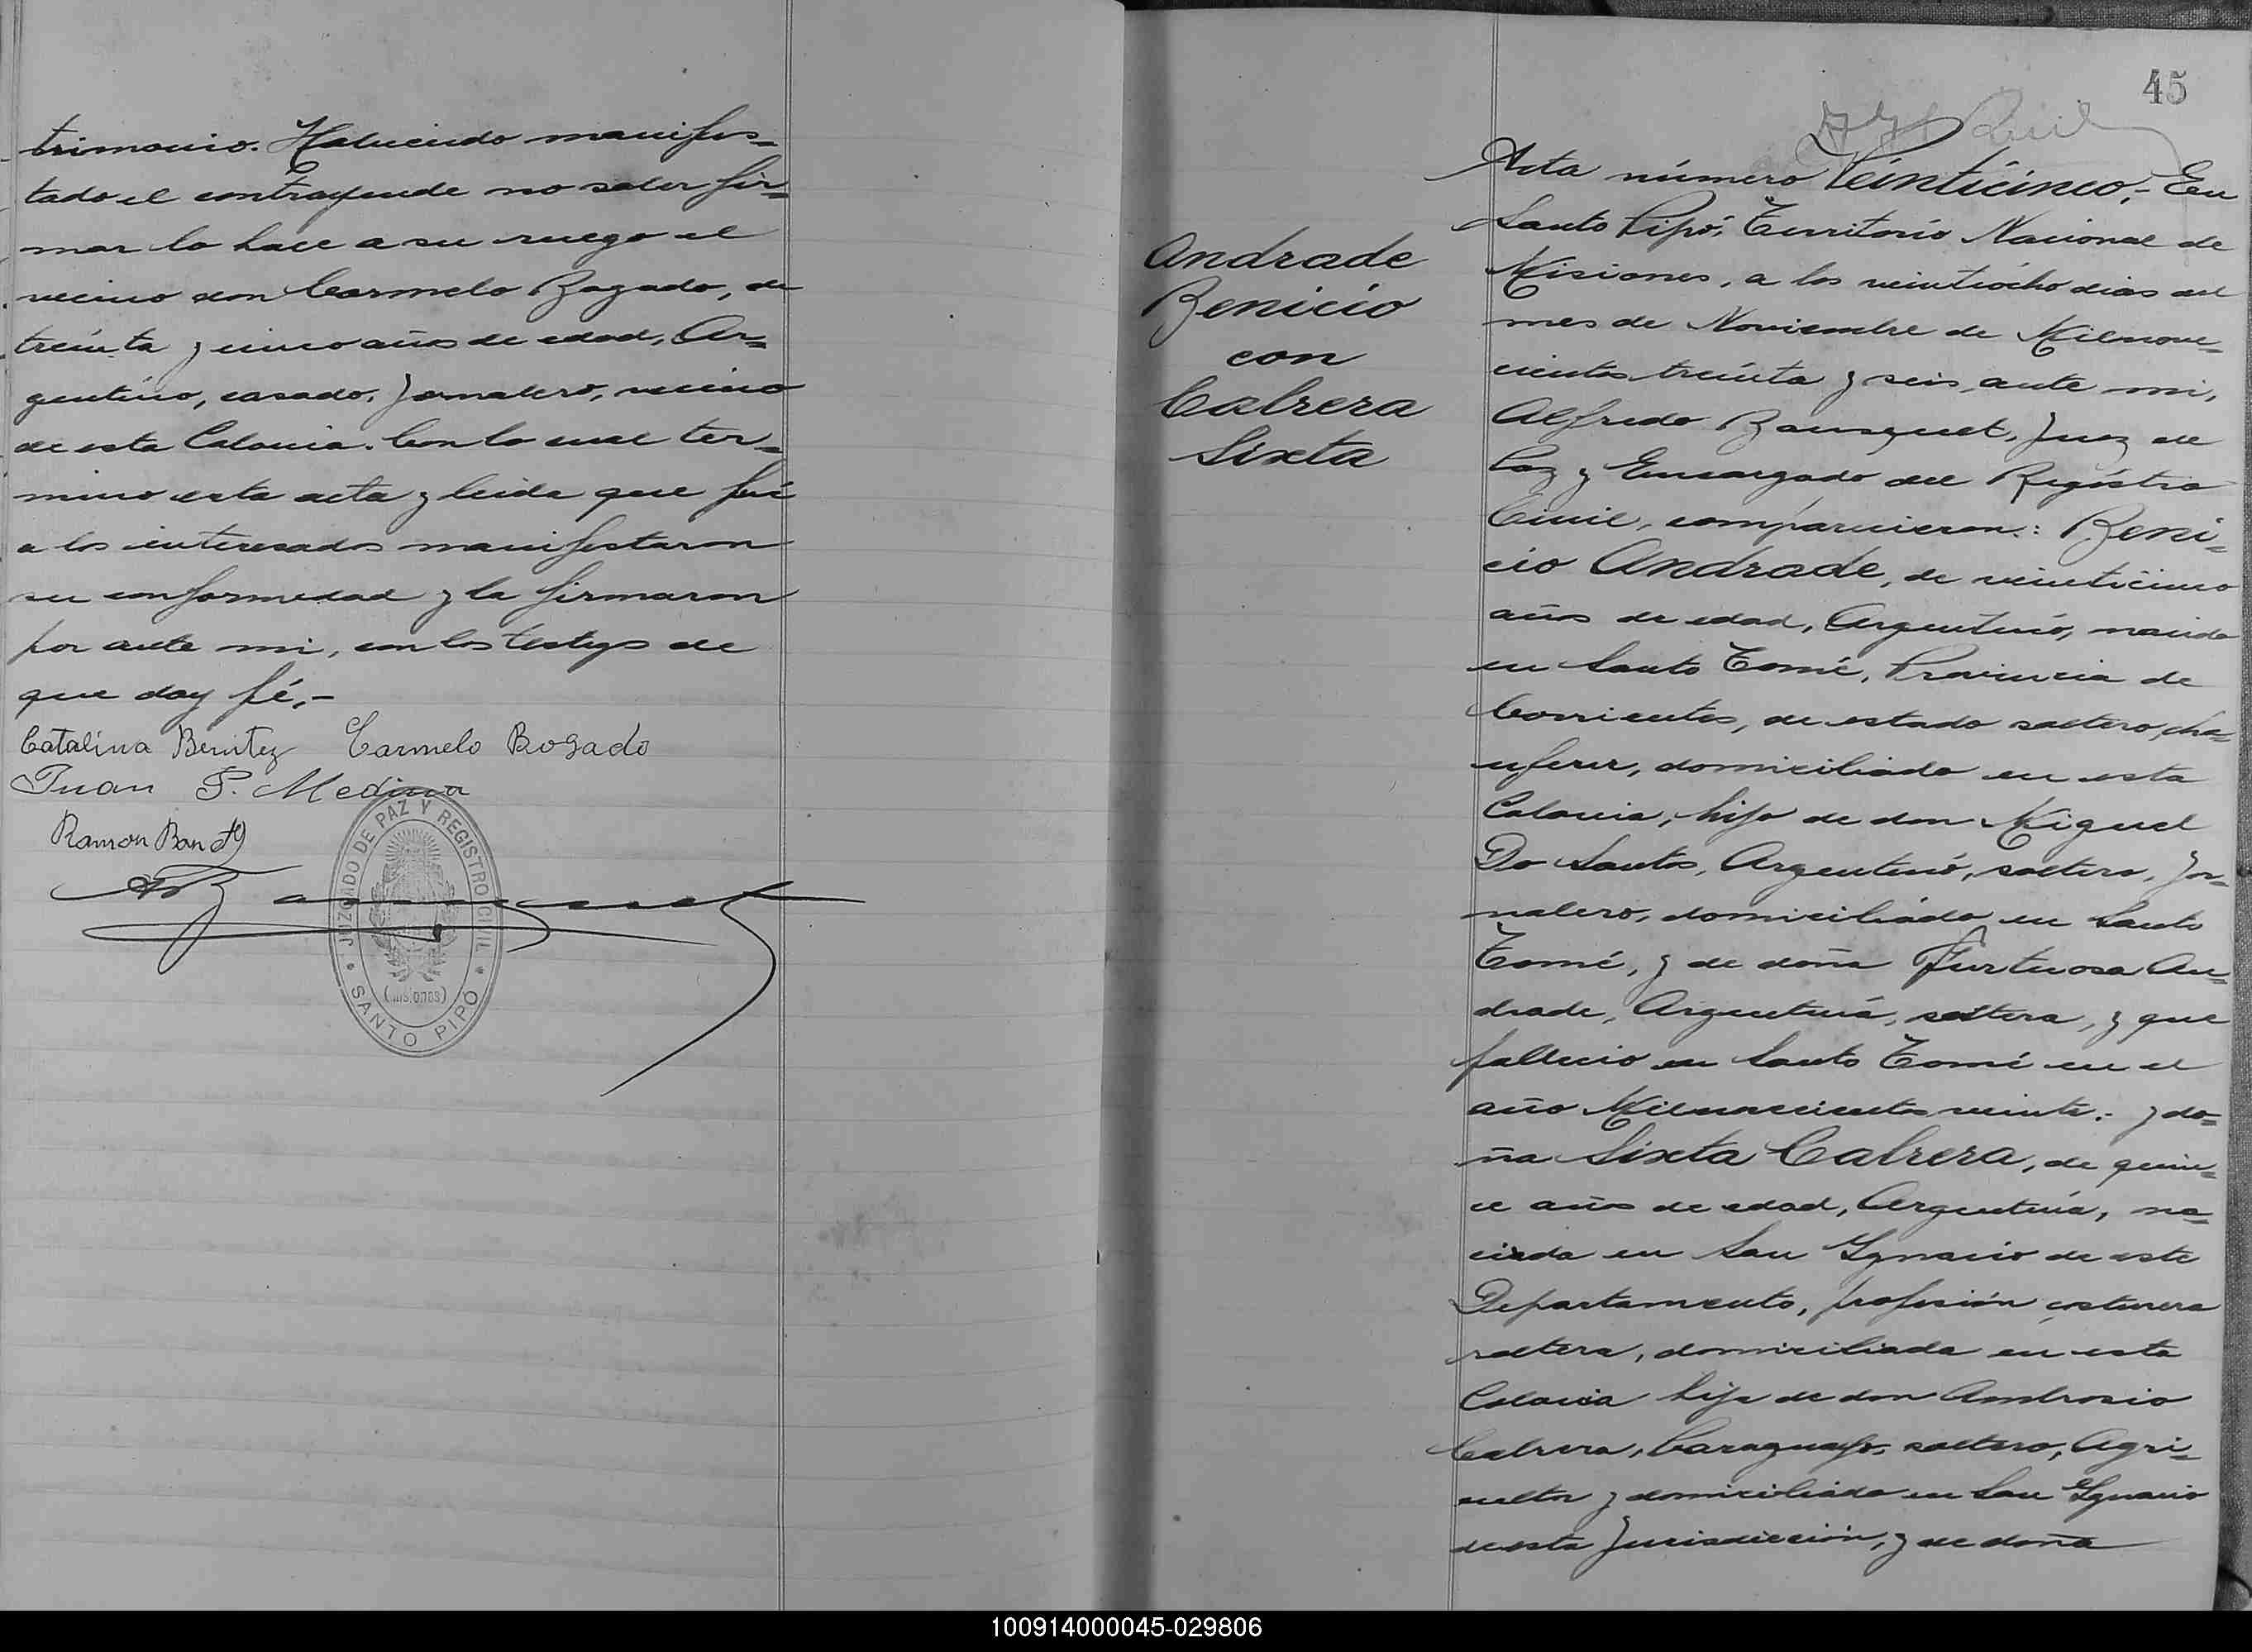 trimonio. Habiendo manifes=
tado el contrayende no saber fir=
mar lo hace a su ruego el
vecino don Carmelo Bogado, de
treinta y cinco años de edad, Ar=
gentino, casado, Jornalero, vecino
de esta Colonia. Con lo cual ter=
mino esta acta y leida que fué
a los interesados manifestaron
su conformedad y la firmaron
por ante mi, con los testigos de
que doy fé.-
Catalina Benitez Carmelo Bogado
Juan P. Medina
Ramon
JUZGADO DE PAZ Y REGISTRO CIVIL
(Misiones)
SANTO PIPÓ
45
Andrade
Benicio
con
Cabrera
Sixta
Acta número Veinticinco,- En
Santo Pipó, Territorio Nacional de
Misiones, a los veintiocho dias del
mes de Noviembre de Milnove=
cientos treinta y seis, ante mi,
Alfredo Bousquet, Juez de
Paz y Encargado del Registro
Civil, comparecieron: Beni=
cio Andrade, de veinticinco
años de edad, Argentino, nacido
en Santo Tomé, Provincia de
Corrientes, de estado soltero, cha=
uferer, domiciliado en esta
Colonia, hijo de don Miguel
Do Santos, Argentino, soltero, Jor=
nalero, domiciliado en Santo
Tomé, y de doña Furtuosa An=
drade, Argentina, soltera, y que
fallecio en Santo Tomé en el
año Milnovecientos veinte.- y do=
ña Sixta Cabrera, de quin=
ce años de edad, Argentina, na=
cida en San Ygnacio de este
Departamento, profesión costurera
soltera, domiciliada en esta
Colonia hija de don Ambrosio
Cabrera, Paraguayo, soltero, Agri=
cultor y domiciliado en San Ygnacio
de esta Jurisdicción, y de doña
100914000045-029806